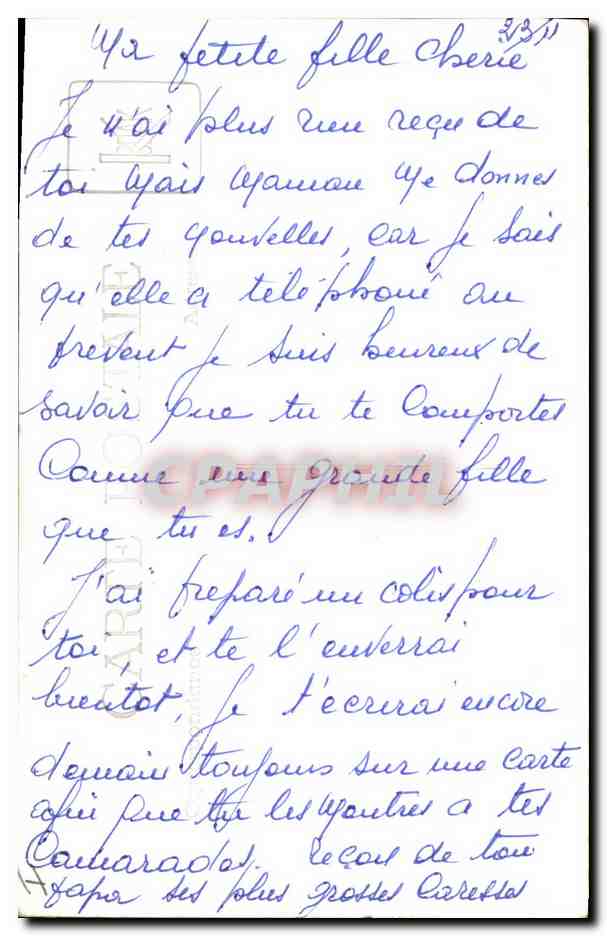 23/11
Ma petite fille cherie
Je n'ai plus rien reçu de
toi Mais Maman Me donnes
de tes Nouvelles, car je sais
qu'elle a téléphoné au
prevent je suis heureux de
savoir que tu te Comportes
Comme une grande fille
que tu es.
J'ai preparé un colis pour
toi, et te l'enverrai
bientot, je t'ecrirai encore
demain toujours sur une carte
afin que tu les Montres a tes
Camarades. reçois de ton
papa ses plus grosses Caresses
CARTE POSTALE
CPAPHIL